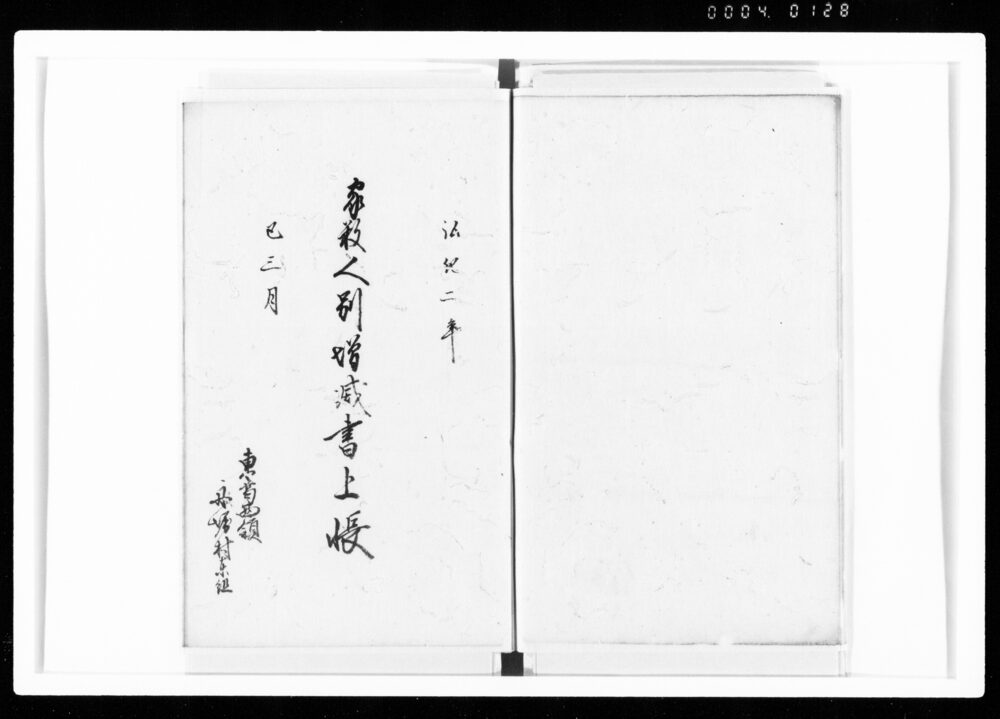 0004. 0128
弘化二年
家数人別増減書上帳
巳三月
東葛西領
村東組